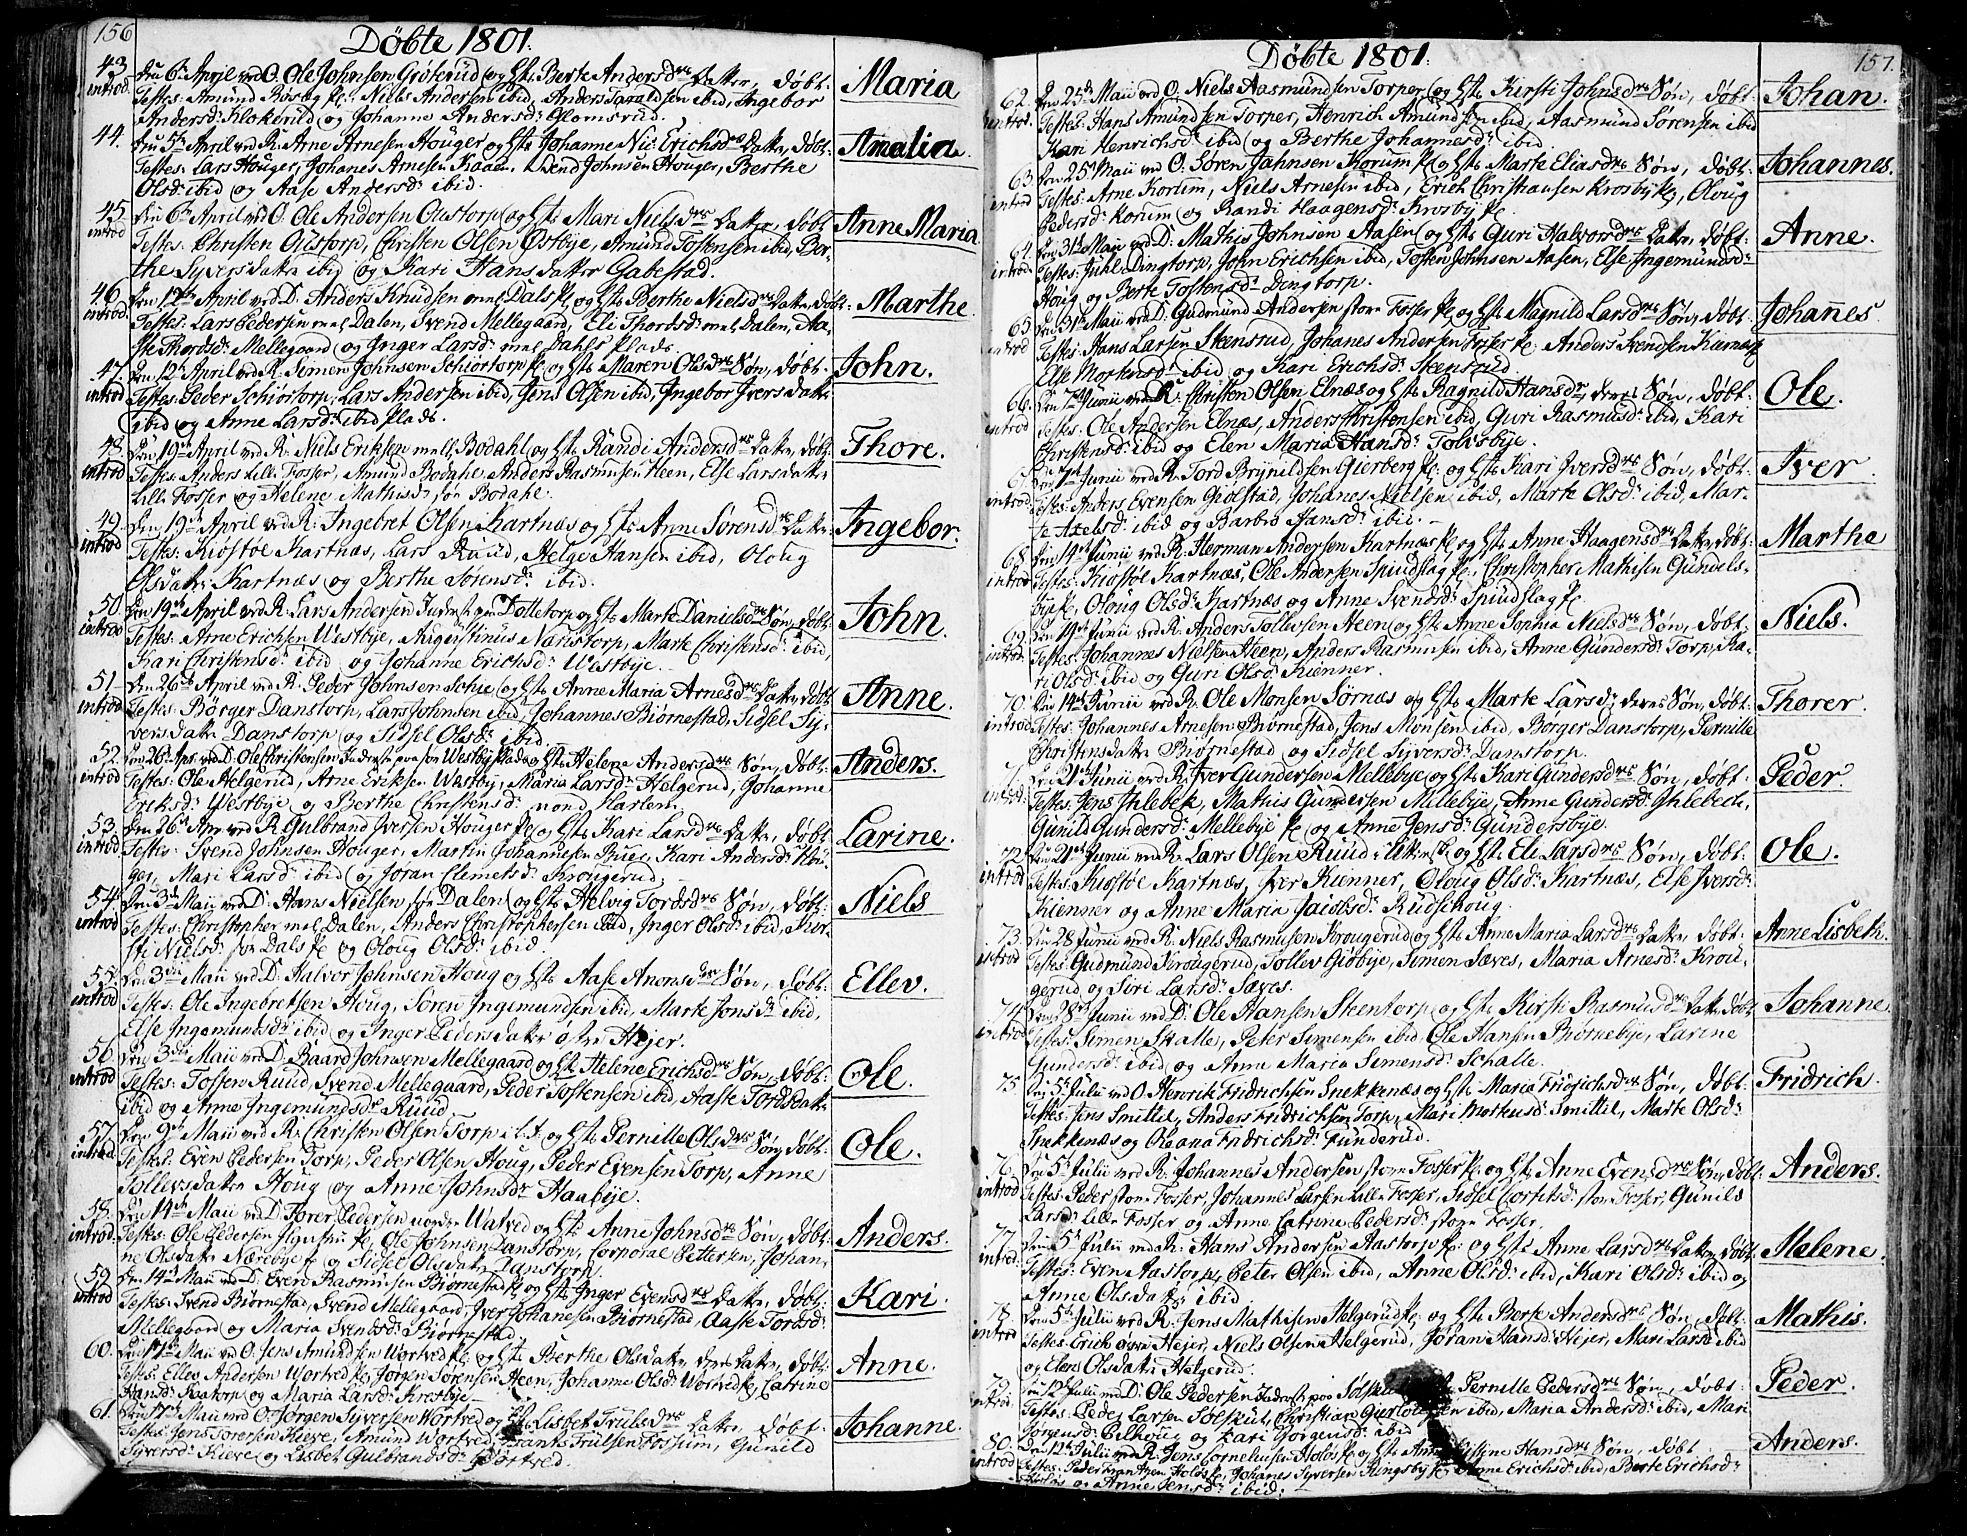 156
Døbte 1801.
43. introd. Den 6te April ved O. Ole Johnsen Grøterud og Hst: Berte Andersdrs Datter, døbt: Maria
Testes: Amund Røsæg pl:, Niels Andersen ibid, Anders Taraldsen ibid, Ingebor
Andersdr Klokerild og Johanne Andersdr Glomsrud.
44. Den 5te April ved R: Arne Arnesen Houger og Hst: Johanne Nic: Erichsdrs Datter, døbt: Amalia.
Testes: Lars Houger, Johanes Arnesen Kaaen, Svend Johnsen Houger, Berthe
Olsdr ibid og Aase Andersdr ibid.
45 introd Den 6te April ved O. Ole Andersen Oustorp og Hst: Mari Nielsdrs Datter, døbt Anne Maria
Testes: Christen Oustorp, Christen Olsen Østbye, Amund Tostensen ibid, Ber-
the Syvers datter ibid og Kari Hans datter Gabestad.
46 introd. Den 12te April ved D: Anders Knudsen mel: Dals pl: og Hst: Berthe Nielsdrs Datter, døbt: Marthe.
Testes: Lars Pedersen mel: Dalen, Svend Mellegaard, Eli Thordsdr mel: Dalen, Aa-
ste Thordsdr Mellegaard og Inger Larsdr mel: Dahls Plads
47. introd Den 12te April ved R: Simen Johnsen Schiørtorp pl: og Hst: Maren Olsdrs Søn, døbt: John.
Testes: Peder Schiørtorp, Lars Andersen ibid, Jens Olsen ibid, Ingebor Ivers datter
ibid og Anne Larsdr ibid Plads.
48. introd Den 19de April ved R: Niels Eriksen mell: Bodahl og Hst: Randi Andersdrs Datter, døbt: Thore.
Testes: Anders Lille Fosser, Amund Bodahl, Anders Rasmusen Heen, Else Larsdatter
Lille Fosser og Helene Mathisdr sør Bodahl.
49. introd Den 19de April ved R: Ingebret Olsen Kartnæs og Hst: Anne Sørensdrs Datter: Ingebor.
Testes: Kiøstøl Kartnæs, Lars Ruud, Helge Hansen ibid, Oloug
Olsdatter Kartnæs og Berthe Sørensdr ibid.
50. introd Den 19de April ved R: Lars Andersen Inderst paa Tolletorp og Hst: Marte Danielsdrs Søn, døbt John.
Testes: Arne Erichsen Westbye, Augustinus Narustorp, Marte Christensdr ibid,
Kari Christensdr ibid og Johanne Erichsdr Westbye.
51 introd Den 26de April ved R: Peder Johnsen Schie og Hst: Anne Maria Arnesdrs Datter, døbt Anne.
Testes: Børger Danstorp, Lars Johnsen ibid, Johannes Biørnestad, Sidsel Sy-
versdatter Danstorp og Sidsel Olsdr ibid.
52. introd Den 26 Apr. ved D: Ole Christensen Inderst paa sør Westby Plads og Hst: Helene Andersdrs Søn, døbt: Anders.
Testes: Ole Helgerud, Arne Eriksen Westby, Maria Larsdr Helgerud, Johanne
Eriksdr Westbye og Berthe Christensdr nord Harlem.
53. introd Den 26de Apr ved R. Gulbrand Iversen Houger pl: og Hst: Kari Larsdrs Datter, døbt Larine.
Testes: Svend Johnsen Houger, Martin Johannesen Buer, Kari Andersdr Hou-
ger, Mari Larsdr ibid og Joran Clemetsdr Krougerud.
54. introd Den 3die Maii ved D: Hans Nielsen sør Dalen og Hst: Helvig Tordsdrs Søn, døbt: Niels
Testes: Christopher mel: Dalen, Anders Christophersen ibid, Inger Olsdr ibid, Kir-
sti Nielsdr sør Dals pl: og Oloug Olsdr ibid.
55. introd Den 3die Maii ved D: Halvor Johnsen Houg og Hst: Aase Anonsdrs Søn, døbt: Ellev.
Testes: Ole Ingebretsen Houg, Søren Ingemundsen ibid, Marte Jonsdr ibid,
Else Ingemundsdr ibid og Inger Pedersdatter østre Hejer.
56 introd Den 3die Maii ved D: Baard Johnsen Mellegaard og Hst: Helene Erichsdrs Søn, døbt: Ole.
Testes: Tosten Ruud, Svend Mellegaard, Peder Tostensen ibid, Aaste Tordsdatter
ibid og Anne Ingemundsdr Ruud.
57. introd Den 9de Maii ved R: Christen Olsen Torp og Hst: Pernille Olsdrs Søn, døbt: Ole.
Testes: Even Pedersen Torp, Peder Olsen Houg, Peder Evensen Torp, Anne
Tollevsdatter Houg og Anne Johnsdr Haabye.
58. introd. Den 14de Maii ved D: Torer Pedersen nordre Watved og Hst: Anne Johnsdrs Søn, døbt: Anders.
Testes: Ole Pedersen pl:, Ole Johnsen Danstorp, Corporal Pettersen, Johan-
ne Olsdatter Nærebye pl: og Sidsel Olsdatter Danstorp.
59. introd Den 14de Maii ved D: Even Rasmusen Biørnestad pl: og Hst: Inger Evensdrs Datter, døbt: Kari.
Testes: Svend Biørnestad, Svend Mellegaard, Iver Johanesen Biørnestad, Aaste Tordsdr
Mellegaard og Maria Svendsdr Biørnestad.
60. Den 17de Maii ved O. Jens Amundsen Wortved pl: og Hst: Berthe Olsdatter deres Datter, døbt: Anne.
Testes: Ellev Andersen Wortved pl:, Jørgen Sørensen Heen, Johanne Olsdr Wortved pl:, Catrine
Hansdr Raatorp og Maria Larsdr Krosbye.
61. Den 17de Maii ved O: Jørgen Syversen Wortved og Hst: Lisbet Trulsdrs Datter, døbt: Johanne.
Testes: Jens Joresen Kieve, Amund Wortved, Frants Trulsen Fossum, Gunild
Syversdr Kieve og Lisbet Gulbrandsdr Wortved.
157.
Døbte 1801.
62. introd. Den 25de Maii ved O. Niels Aasmundsen Torper og Hst: Kirsti Johnsdrs Søn, døbt: Johan.
Testes: Hans Amundsen Torper, Henrich Amundsen ibid, Aasmund Sørensen ibid
Kari Henrichsdr ibid og Berthe Johannesdr ibid.
63. introd Den 25de Maii ved O: Søren Jahnsen Korum pl: og Hst: Marte Eliasdrs Søn, døbt: Johannes.
Testes: Arne Korum, Niels Arnesen ibid, Erich Christiansen Krosby pl:, Oloug
Pedersdr Korum og Randi Haagensdr Krosby pl:
64. introd. Den 31te Maii ved D: Mathis Johnsen Aasen og Hst: Guri Halvorsdrs Datter, døbt: Anne.
Testes: Juhl Dingtorp, John Erichsen ibid, Tosten Johnsen Aasen, Else Ingemundsdr
Houg og Berte Tostensdr Dingtorp.
65 introd Den 31te Maii ved D: Gudmund Andersen store Fosser pl: og Hst: Magnild Larsdrs Søn, døbt: Johanes
Testes: Hans Larsen Steensrud, Johanes Andersen Fosser pl:, Anders Svendsen
Else Mortensdr ibid og Kari Erichsdr Steensrud.
66. introd Den 7de Junii ved R: Christen Olsen Elnæs og Hst: Ragnild Hansdr, deres Søn, døbt: Ole.
Testes: Ole Andersen Elnæs, Anders Christensen ibid, Guri Rasmusdr ibid, Kari
Christensdr ibid og Elen Maria Hansdr Tolvsbye.
67. introd Den 7de Junii ved R: Tord Brynildsen Gierberg pl: og Hst: Kari Iversdrs Søn, døbt: Iver.
Testes: Anders Evensen Giolstad, Johanes Nielsen ibid, Marte Olsdr ibid, Mar-
te Axelsdr ibid og Barbro Hansdr ibid.
68. introd Den 14de Junii ved R: Herman Andersen Kartnæs pl: og Hst: Anne Haagensdrs Datter, døbt: Marthe
Testes: Kiøstøl Kartnæs, Ole Andersen Spiudslag pl:, Christopher Mathisen Gundels-
bye pl:, Oloug Olsdr Kartnæs og Anne Svendsdr Spiudslag pl:
69. introd. Den 14de Junii ved R: Anders Tollevsen Heen og Hst: Anne Sophia Nielsdrs Søn, døbt: Niels.
Testes: Johannes Nielsen Heen, Anders Rasmusen ibid, Anne Gundersdr Torp, Ka-
ri Olsdr ibid og Guri Olsdr Kienner.
70. introd Den 14de Junii ved R: Ole Monsen Sørnæs og Hst: Marte Larsdr deres Søn, døbt: Thorer.
Testes: Johannes Arnesen Biørnestad, Jens Monsen ibid, Børger Danstorp, Pernille
Christensdatter Biørnestad og Sidsel Syversdr Danstorp.
71. introd. Den 21de Junii ved R: Iver Gundersen Mellebye og Hst: Kari Gundersdrs Søn, døbt: Peder.
Testes: Jens Ihlebek, Mathis Gundersen Mellebye, Anne Gundersdr Ihlebech,
Gunild Gundersdr Mellebye pl: og Anne Jensdr Gundersbye.
72. introd Den 21de Junii ved R: Lars Olsen Ruud og Hst: Eli Larsdrs Søn, døbt: Ole.
Testes: Kiøstøl Kartnæs, Iver Kienner, Oloug Olsdr Kartnæs, Else Iversdr
Kienner og Anne Maria Jacobsdr Rudschoug.
73. introd Den 28 Junii ved R: Niels Rasmusen Krougerud og Hst: Anne Maria Larsdrs Datter, døbt: Anne Lisbeth.
Testes: Gudmund Krougerud, Tollev Giøbye, Simen Sæves, Maria Arnesdr Krou-
gerud og Siri Larsdr Sæves.
74. introd Den 28de Junii ved D: Ole Hansen Steentorp og Hst: Kirsti Rasmusdrs Datter, døbt Johanne.
Testes: Simen Skalle, Peter Simensen ibid, Ole Hansen Biørnebye, Larine
Gundersdr ibid og Anne Maria Simensdr Schalle.
75 Den 5te Julii ved O. Henrik Fridrichsen Snekkenæs og Hst: Maria Fridrichsdrs Søn, døbt: Fridrich.
Testes: Jens Smittil, Anders Fridrichsen Torp, Mari Morkusdr Smittil, Marte Olsdr
Snekkenæs og Oleana Fridrichsdr Funderud.
76. introd Den 5te Julii ved R: Johannes Andersen store Fosser pl: og Hst: Anne Evensdrs Søn, døbt: Anders.
Testes: Peder store Fosser, Johannes Larsen Lille Fosser, Sidsel Corfitsdr store Fosser, Gunild
Larsdr Lille Fosser og Anne Catrine Pedersdr store Fosser.
77. introd. Den 5te Julii ved R: Hans Andersen Aastorp pl: og Hst: Anne Larsdrs Datter, døbt Melene.
Testes: Even Aastorp, Peter Olsen ibid, Anne Olsdr ibid, Kari Olsdr ibid og
Anne Olsdatter ibid.
78. introd Den 5te Julii ved R: Jens Mathisen Helgerud pl: og Hst: Berte Andersdrs Søn, døbt: Mathis.
Testes: Erich øvre Hejer, Niels Olsen Helgerud, Joran Hansdr Hejer, Mari Larsdr ibid
og Eleni Olsdatter Helgerud.
79. introd. Den 12te Julii ved D: Ole Pedersen Inderst paa Sølsku Pernille Pedersdrs Søn, døbt: Peder.
Testes: Peder Larsen Sølskut, Christian ibid, Maria Andersdr ibid, Mari
Jørgensdr og Kari Jørgensdr ibid
80. introd Den 12te Julii ved R: Jens Cornelius Holøs pl: og Hst: Anne Hansdrs Søn, døbt Anders.
Testes: Peder Frantzen Holøs pl:, Johanes Syversen Ringsby pl:, Anne Erichsdr ibid, Berte Erichsdr
Holøs og Anne Jensdr ibid.